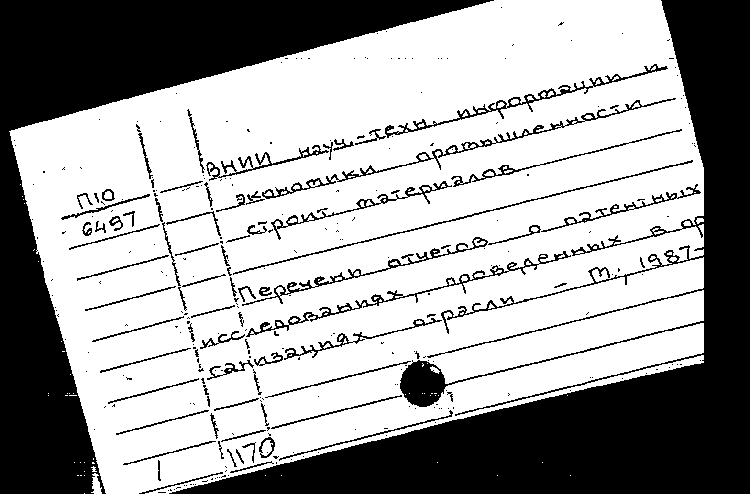 ВНИИ науч.-техн. информации и
экономики промышленности
строит. материалов.
П10
6497
Перечень отчетов о патентных
исследованиях, проведенных в ор
ганизациях отрасли. - М., 1987-
1
1170